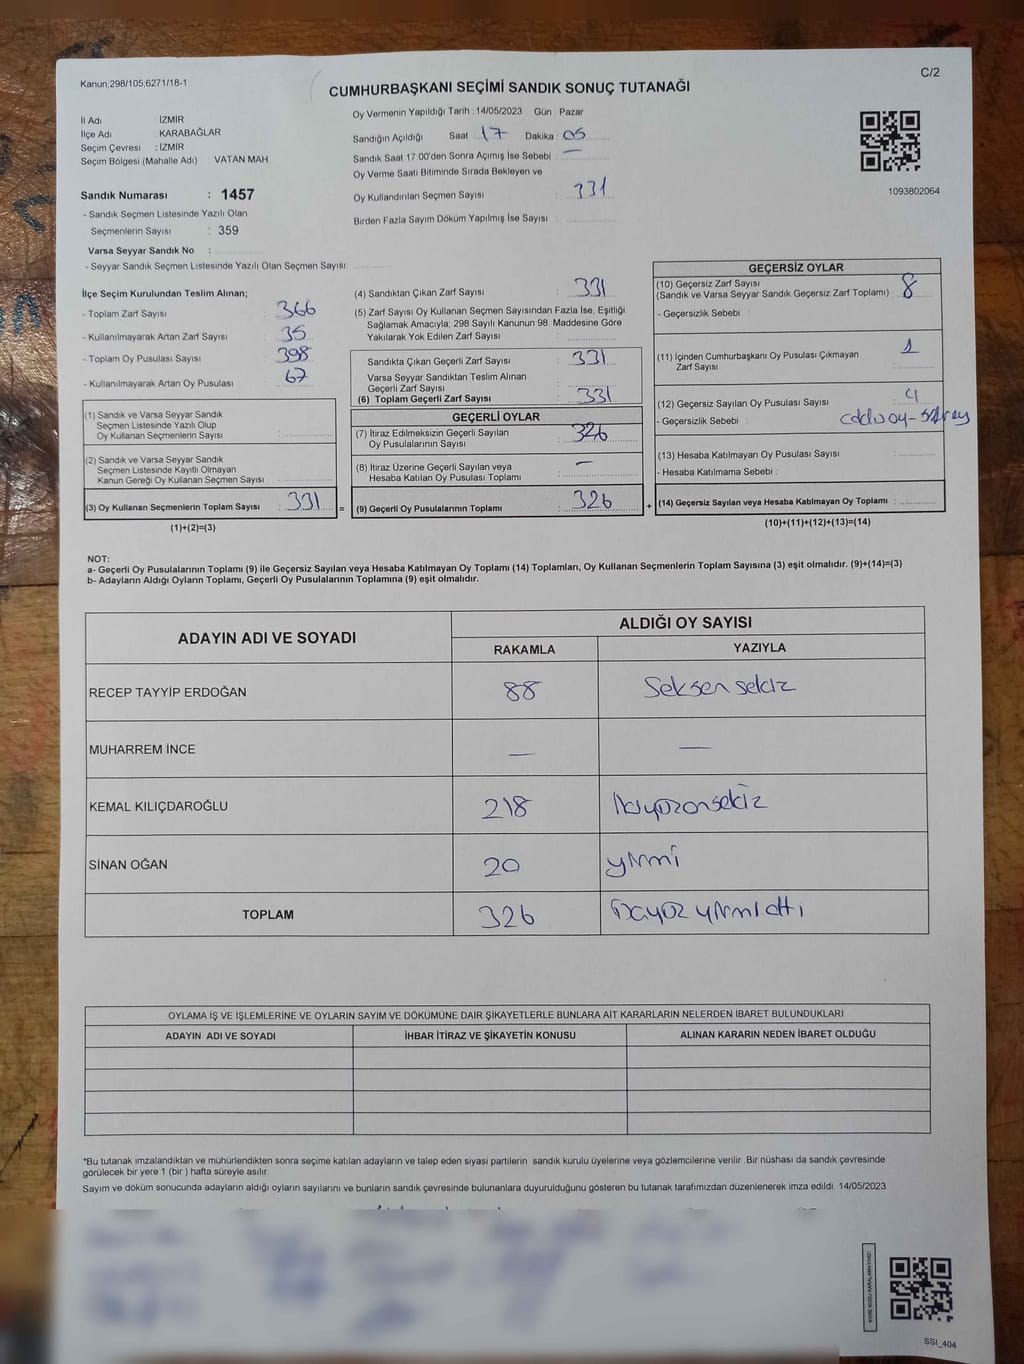 Kanun;298/105;6271/18-1
C/2
CUMHURBAŞKANI SEÇİMİ SANDIK SONUÇ TUTANAĞI
İl Adı İZMİR
İlçe Adı KARABAĞLAR
Seçim Çevresi : İZMİR
Seçim Bölgesi (Mahalle Adı) VATAN MAH.
Sandık Numarası : 1457
- Sandık Seçmen Listesinde Yazılı Olan
Seçmenlerin Sayısı : 359
Varsa Seyyar Sandık No :
- Seyyar Sandık Seçmen Listesinde Yazılı Olan Seçmen Sayısı:
Oy Vermenin Yapıldığı Tarih : 14/05/2023 Gün : Pazar
Sandığın Açıldığı Saat : 17 Dakika : 05
Sandık Saat 17:00'den Sonra Açımış İse Sebebi : —
Oy Verme Saati Bitiminde Sırada Bekleyen ve
Oy Kullandırılan Seçmen Sayısı : 331
Birden Fazla Sayım Döküm Yapılmış İse Sayısı :
1093802064
İlçe Seçim Kurulundan Teslim Alınan;
- Toplam Zarf Sayısı : 366
- Kullanılmayarak Artan Zarf Sayısı : 35
- Toplam Oy Pusulası Sayısı : 398
- Kullanılmayarak Artan Oy Pusulası : 67
(1) Sandık ve Varsa Seyyar Sandık
Seçmen Listesinde Yazılı Olup
Oy Kullanan Seçmenlerin Sayısı :
(2) Sandık ve Varsa Seyyar Sandık
Seçmen Listesinde Kayıtlı Olmayan
Kanun Gereği Oy Kullanan Seçmen Sayısı :
(3) Oy Kullanan Seçmenlerin Toplam Sayısı : 331 =
(1)+(2)=(3)
(4) Sandıktan Çıkan Zarf Sayısı : 331
(5) Zarf Sayısı Oy Kullanan Seçmen Sayısından Fazla İse, Eşitliği
Sağlamak Amacıyla; 298 Sayılı Kanunun 98. Maddesine Göre
Yakılarak Yok Edilen Zarf Sayısı :
Sandıkta Çıkan Geçerli Zarf Sayısı : 331
Varsa Seyyar Sandıktan Teslim Alınan
Geçerli Zarf Sayısı :
(6) Toplam Geçerli Zarf Sayısı : 331
GEÇERLİ OYLAR
(7) İtiraz Edilmeksizin Geçerli Sayılan
Oy Pusulalarının Sayısı : 326
(8) İtiraz Üzerine Geçerli Sayılan veya
Hesaba Katılan Oy Pusulası Toplamı : —
(9) Geçerli Oy Pusulalarının Toplamı : 326 +
GEÇERSİZ OYLAR
(10) Geçersiz Zarf Sayısı
(Sandık ve Varsa Seyyar Sandık Geçersiz Zarf Toplamı) : 8
- Geçersizlik Sebebi :
(11) İçinden Cumhurbaşkanı Oy Pusulası Çıkmayan 1
Zarf Sayısı :
(12) Geçersiz Sayılan Oy Pusulası Sayısı : 4
- Geçersizlik Sebebi :
(13) Hesaba Katılmayan Oy Pusulası Sayısı :
- Hesaba Katılmama Sebebi :
(14) Geçersiz Sayılan veya Hesaba Katılmayan Oy Toplamı :
(10)+(11)+(12)+(13)=(14)
NOT:
a- Geçerli Oy Pusulalarının Toplamı (9) ile Geçersiz Sayılan veya Hesaba Katılmayan Oy Toplamı (14) Toplamları, Oy Kullanan Seçmenlerin Toplam Sayısına (3) eşit olmalıdır. (9)+(14)=(3)
b- Adayların Aldığı Oyların Toplamı, Geçerli Oy Pusulalarının Toplamına (9) eşit olmalıdır.
ADAYIN ADI VE SOYADI ALDIĞI OY SAYISI
RAKAMLA YAZIYLA
RECEP TAYYİP ERDOĞAN 88 Seksen sekiz
MUHARREM İNCE — —
KEMAL KILIÇDAROĞLU 218 İkiyüzonsekiz
SİNAN OĞAN 20 yirmi
TOPLAM 326 Üçyüz yirmi altı
OYLAMA İŞ VE İŞLEMLERİNE VE OYLARIN SAYIM VE DÖKÜMÜNE DAİR ŞİKAYETLERLE BUNLARA AİT KARARLARIN NELERDEN İBARET BULUNDUKLARI
ADAYIN ADI VE SOYADI İHBAR İTİRAZ VE ŞİKAYETİN KONUSU ALINAN KARARIN NEDEN İBARET OLDUĞU
*Bu tutanak imzalandıktan ve mühürlendikten sonra seçime katılan adayların ve talep eden siyasi partilerin sandık kurulu üyelerine veya gözlemcilerine verilir .Bir nüshası da sandık çevresinde
görülecek bir yere 1 (bir ) hafta süreyle asılır.
Sayım ve döküm sonucunda adayların aldığı oyların sayılarını ve bunların sandık çevresinde bulunanlara duyurulduğunu gösteren bu tutanak tarafımızdan düzenlenerek imza edildi. 14/05/2023
KARE KODU KARALAMAYINIZ!
SSI_404